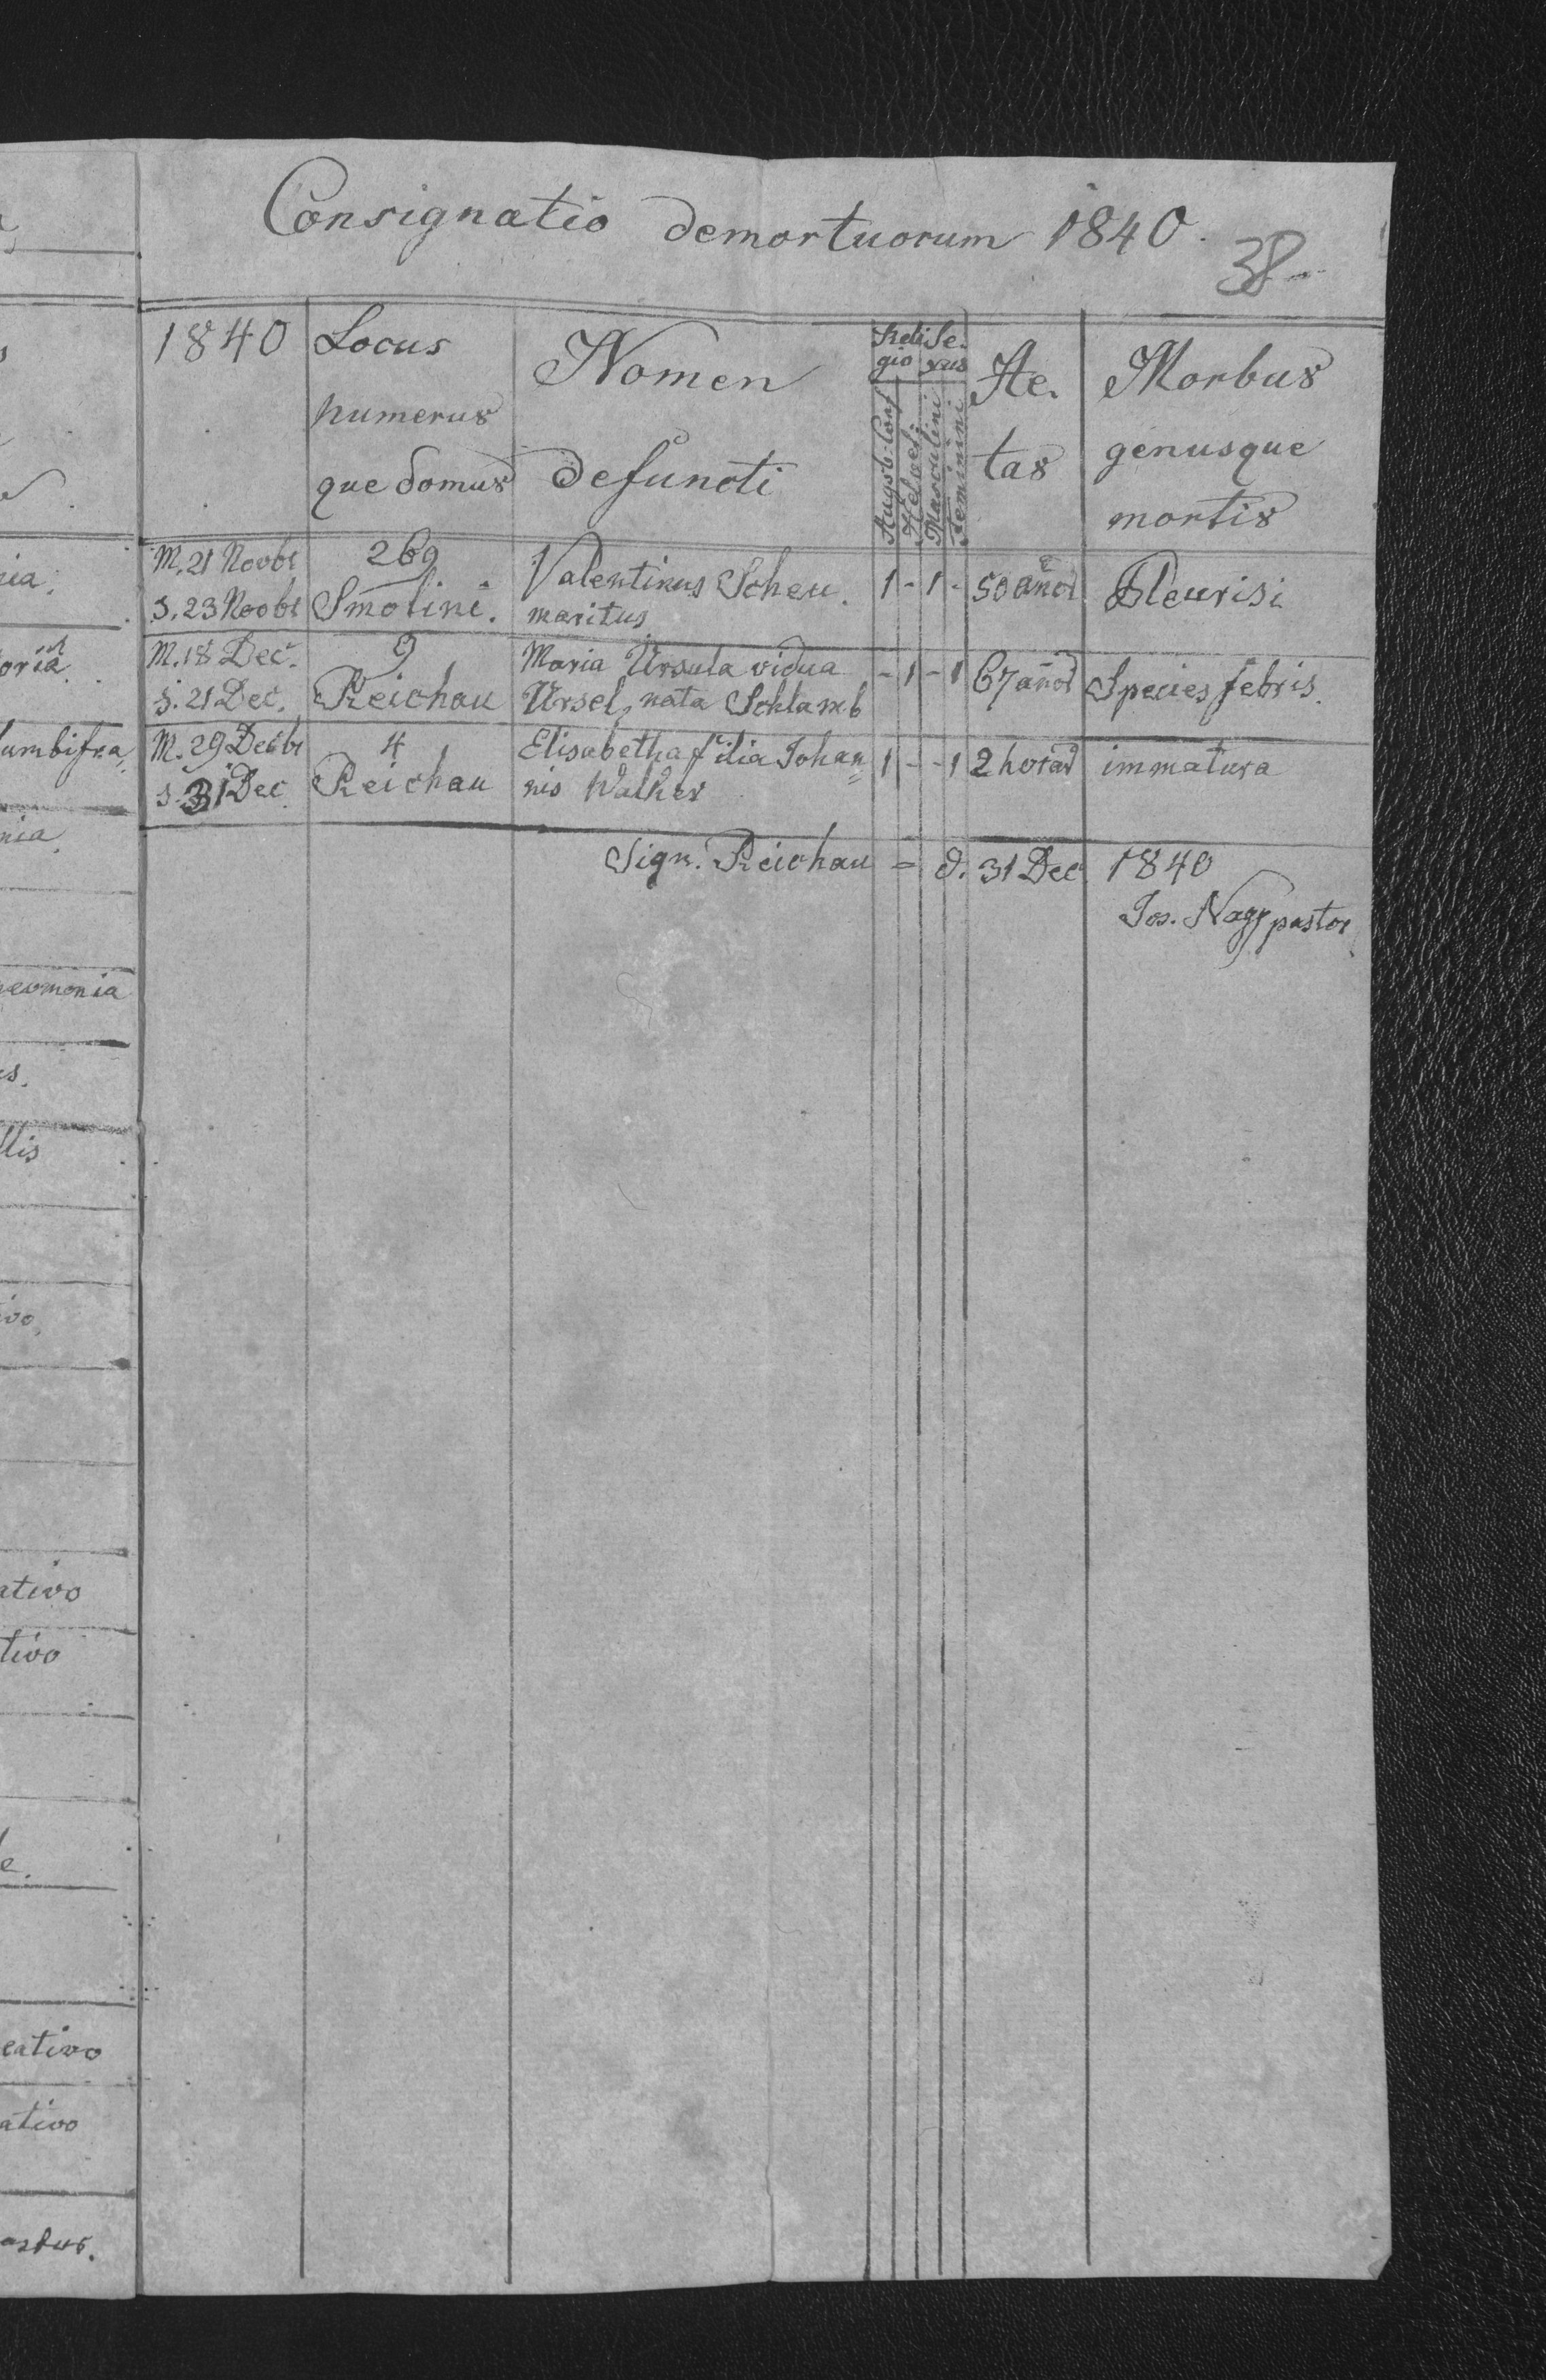 Consignatio demortuorum 1840.
38
1840
Locus
numerus
que domus
Nomen
defuncti
Reli
gio
Se.
xus
Augsb. Conf
Helveti
Masculini
Feminini
Ae.
tas
Morbus
genusque
mortis
M. 21 Novbr
S. 23 Novbr
269
Smolini.
Valentinus Scheu.
maritus
1 - 1 -
50 anor
Pleurisi
M. 18 Dec.
S. 21 Dec.
9
Reichau
Maria Ursula vidua
Ursel, nata Schlamb
- 1 - 1
67 anor
Species febris.
M. 29 Decbr
S. 31 Dec
4
Reichau
Elisabetha filia Johan
nis Walker
1 - - 1
2 horar
immatura
Sign. Reichau = d. 31 Dec. 1840
Jos. Nagy pastor
nia.
oria.
umbifra
nia.
eumonia
es.
llis
ivo
ativo
tivo
e.
eativo
ativo